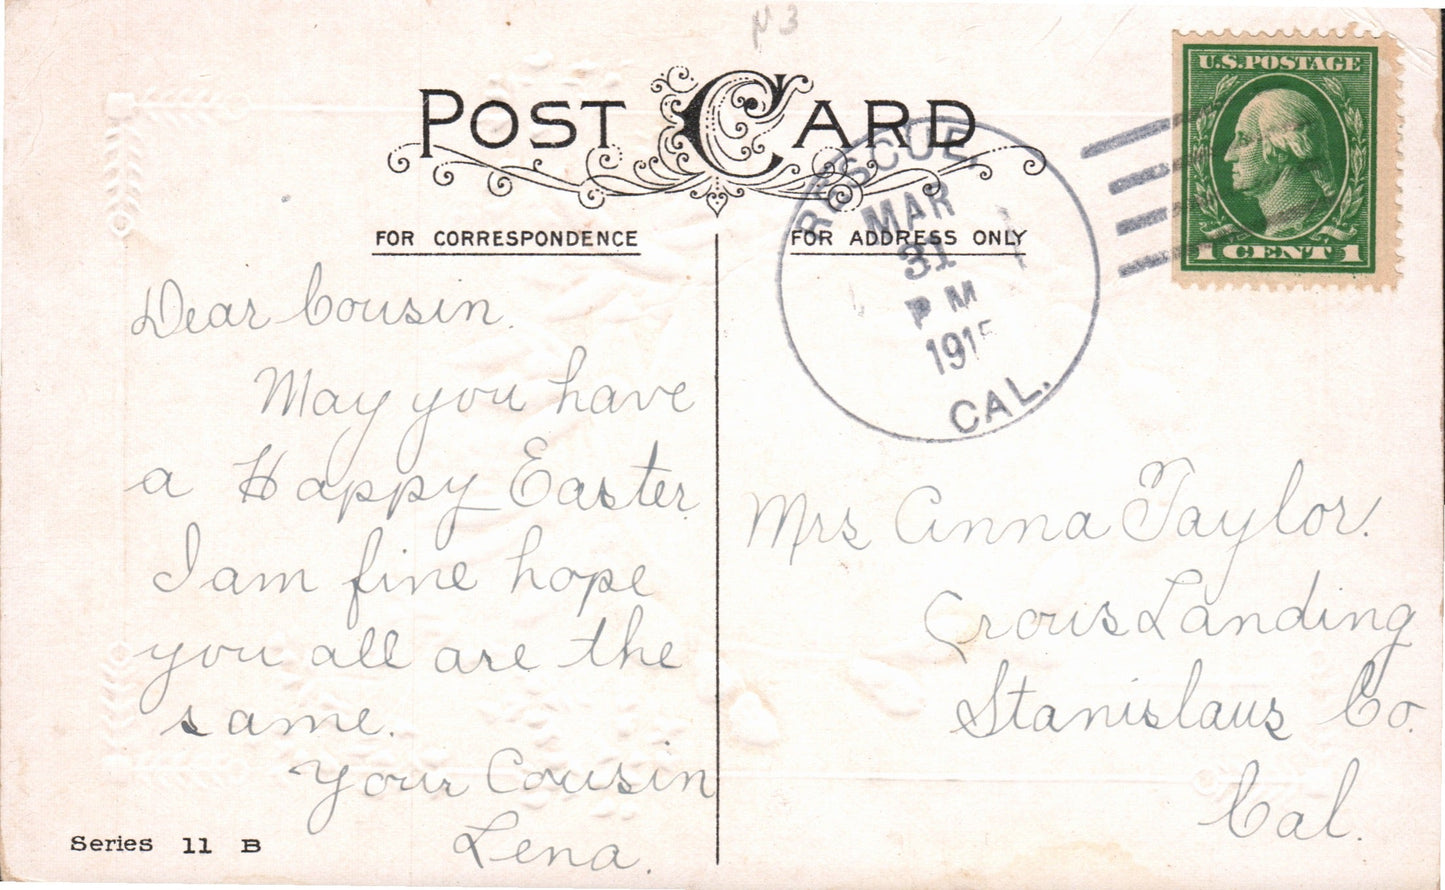 N3
POST CARD
U.S. POSTAGE
1 CENT 1
RESCUE,
MAR
31
PM
1915
CAL.
FOR CORRESPONDENCE
FOR ADDRESS ONLY
Dear Cousin.
May you have
a Happy Easter.
I am fine hope
you all are the
same.
Your Cousin
Lena.
Mrs Anna Taylor.
Crows Landing
Stanislaus Co.
Cal.
Series 11 B